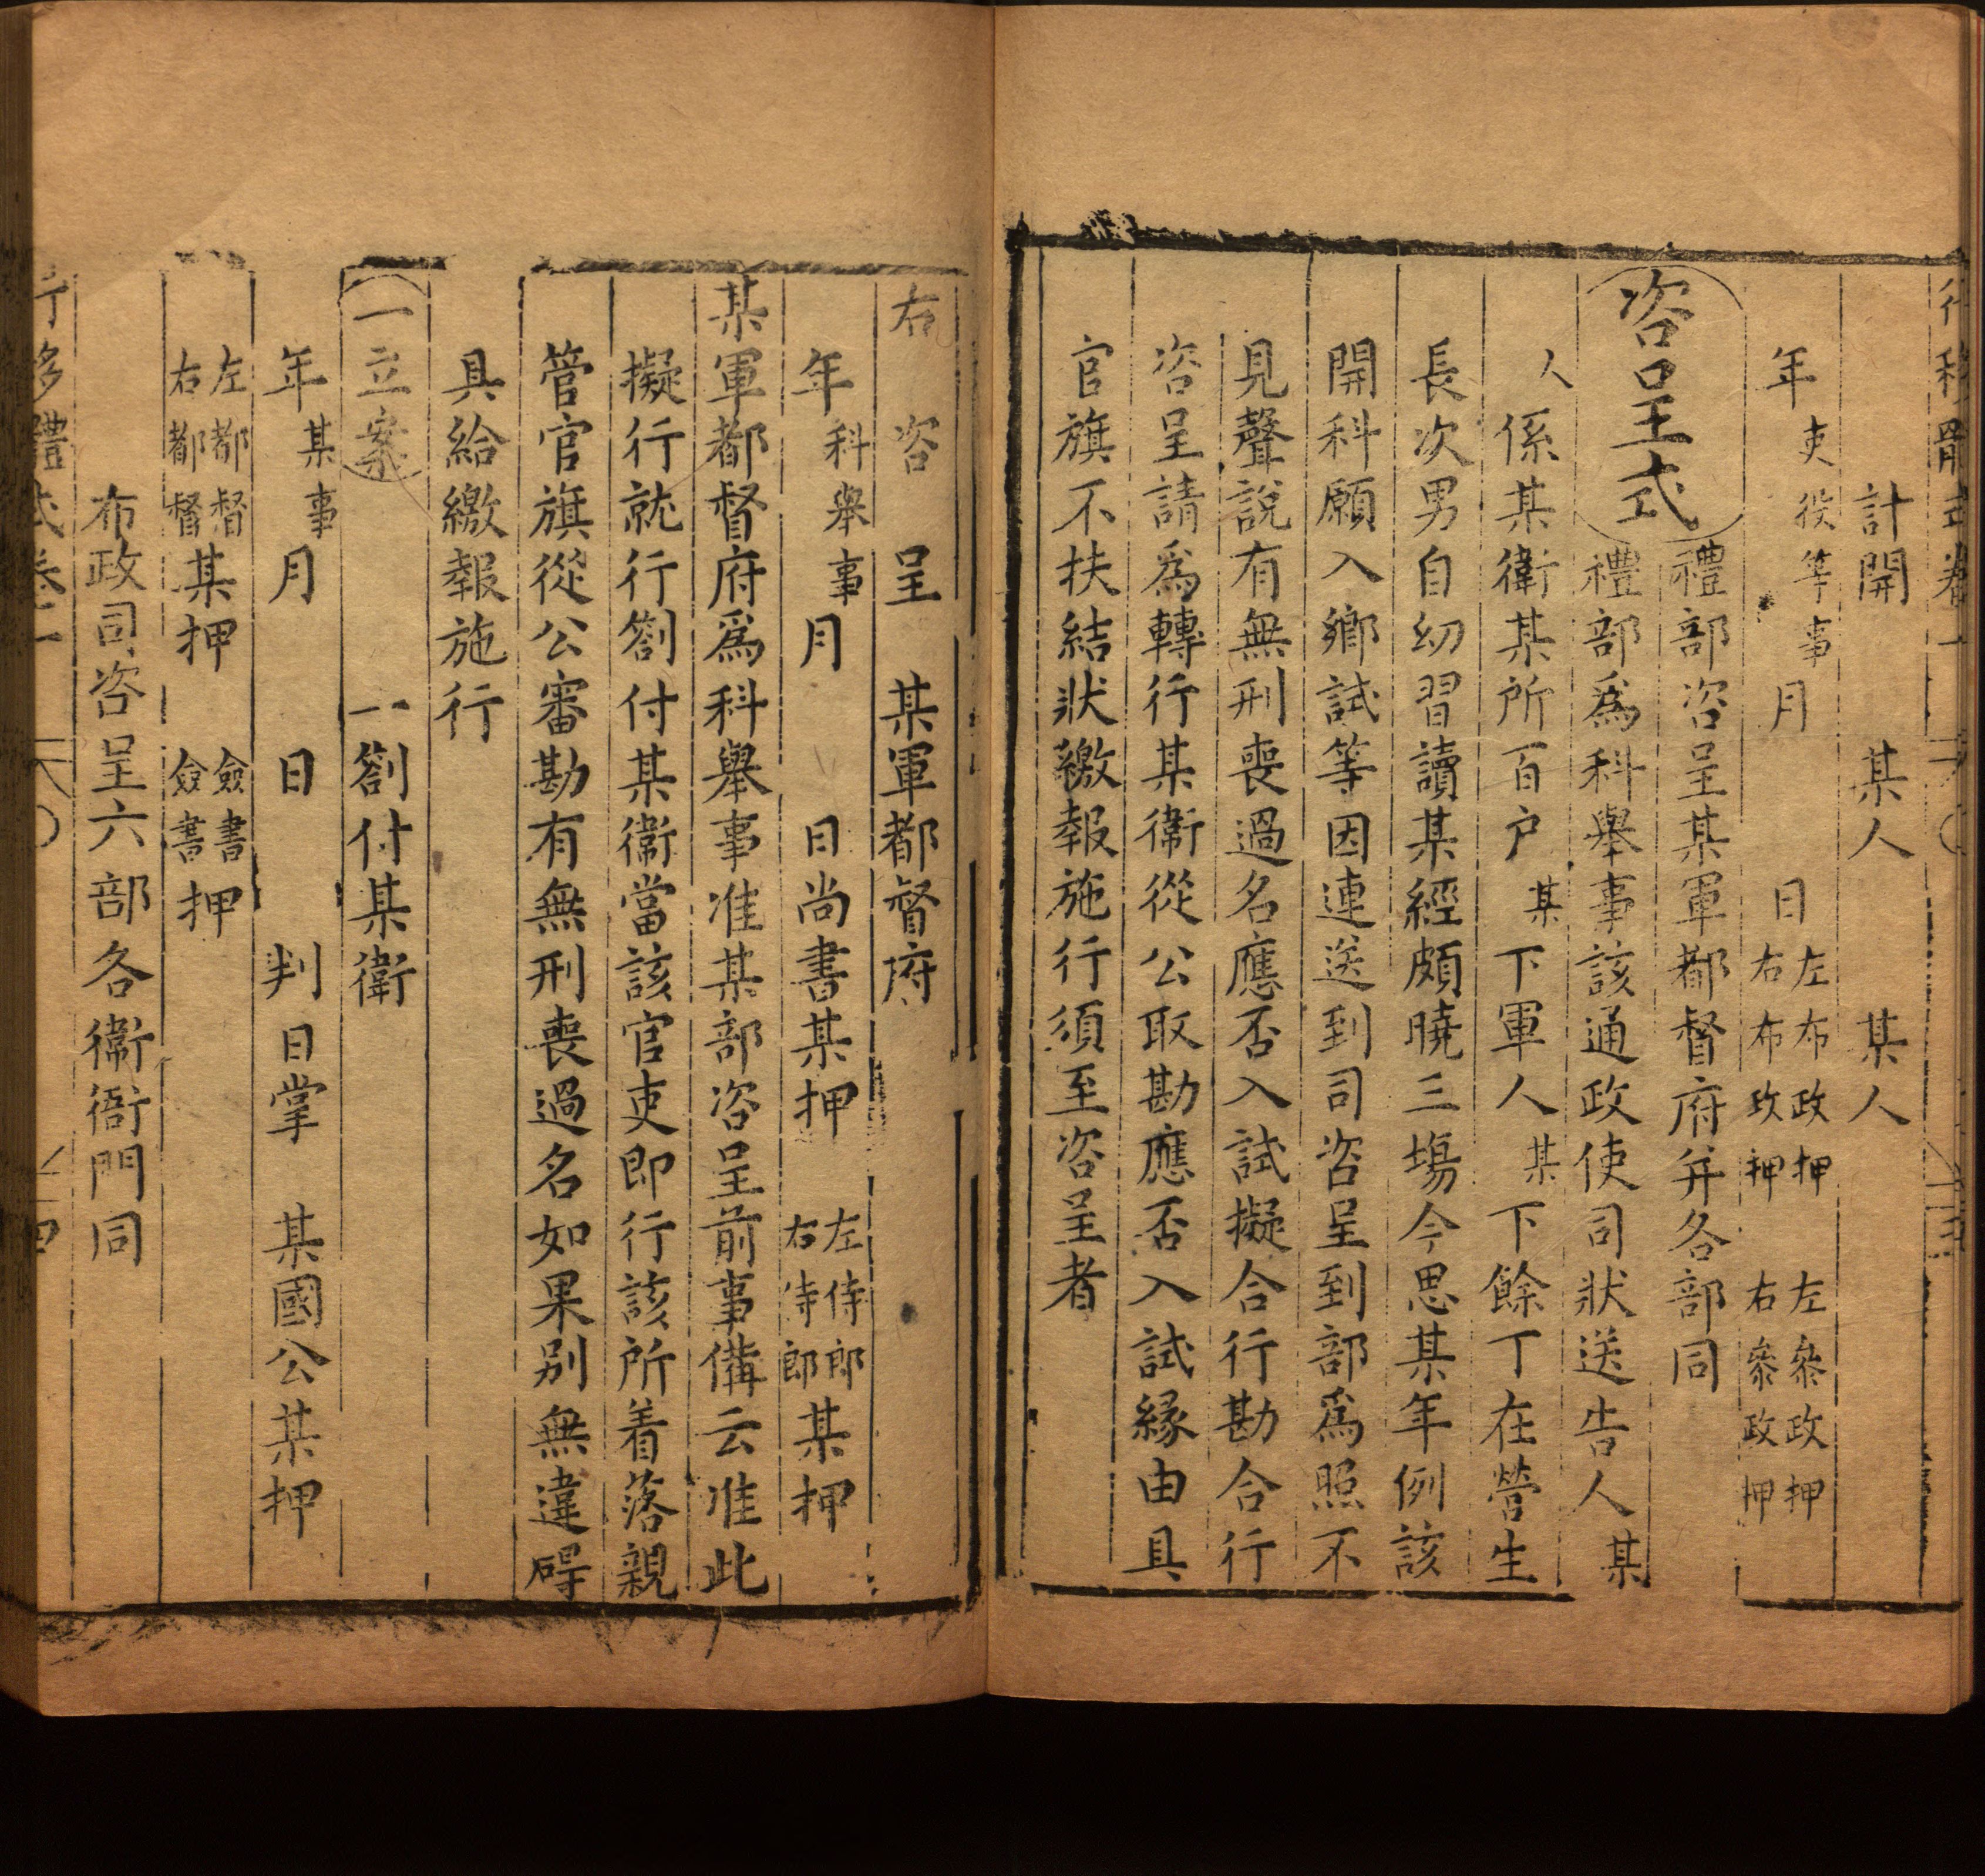 計開 某人 某人
年 吏役等事 月 日 左布政押 右布政押 左叅政押 右叅政押
咨呈式 禮部咨呈某軍都督府并各部同
禮部爲科舉事該通政使司狀送告人某
人係某衛某所百户某下軍人某下餘丁在營生
長次男自幼習讀某經頗曉三塲今思某年例該
開科願入鄉試等因連送到司咨呈到部爲照不
見聲説有無刑喪過名應否入試擬合行勘合行
咨呈請爲轉行某衛從公取勘應否入試緣由具
官旗不扶結狀繳報施行須至咨呈者
右咨呈 某軍都督府
年 科舉事 月 日尚書某押 左侍郎 右侍郎 某押
某軍都督府爲科舉事准某部咨呈前事備云准此
擬行就行劄付某衛當該官吏即行該所着落親
管官旗從公審勘有無刑喪過名如果别無違碍
具給繳報施行
一立案 一劄付某衛
年 某事 月 日 判日掌 某國公某押
左都督 右都督 某押 僉書 僉書 押
布政司咨呈六部各衛衙門同
行移體式卷一